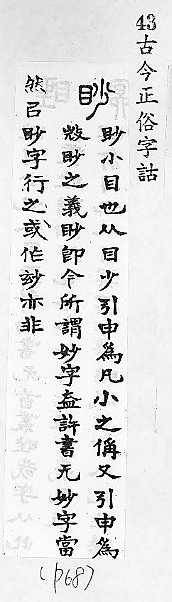 43古今正俗字詁
眇
眇小目也从目少引申為凡小之偁又引申為
㣲眇之義眇即今所謂妙字盍許書无妙字當
然㠯眇字行之或作玅亦非
(P68)